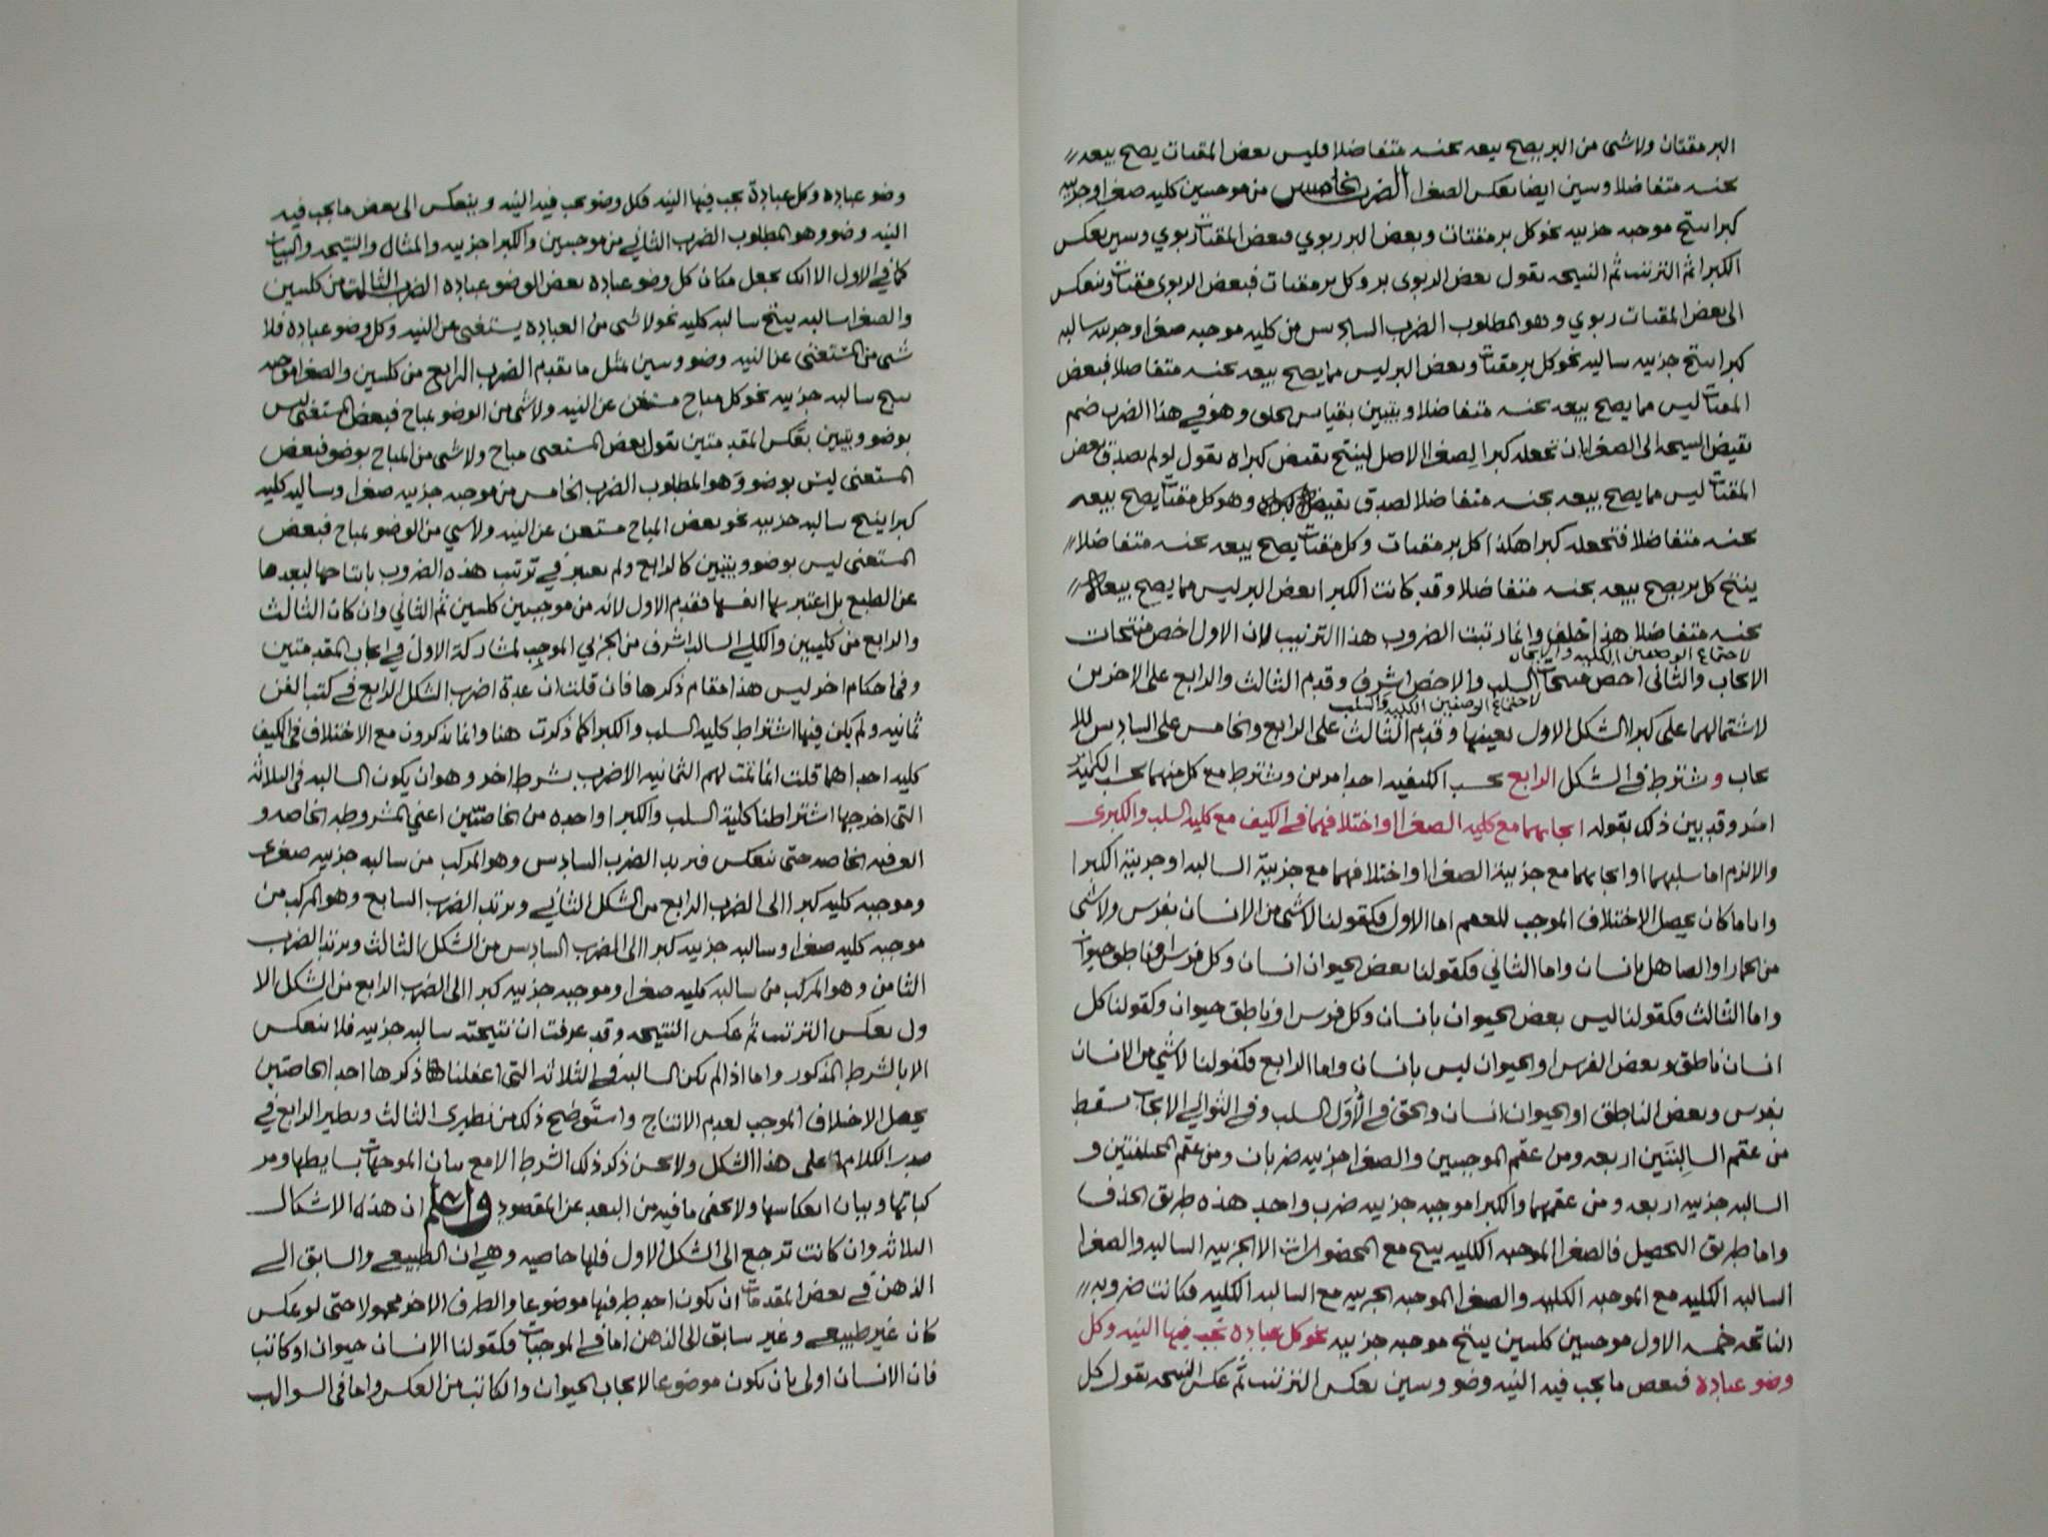 البر مقتات ولا شى من البر يصح بيعه بجنسه متفاضلا فليس بعض المقتات يصح بيعه
بجنسه متفاضلا وسين ايضا بعكس الصغرا الضرب الخامس من موجبتين كليه صغرا وجزييه
كبرا ينتج موجبه جزييه نحو كل بر مقتات وبعض البر ربوي فبعض المقتات ربوي وسين بعكس
الكبرا ثم الترتيب ثم النتيجه نقول بعض الربوى بر وكل بر مقتات فبعض الربوى مقتات وينعكس
الى بعض المقتات ربوي وهو المطلوب الضرب السادس من كليه موجبه صغرا وجزييه سالبه
كبرا ينتج جزييه سالبه نحو كل بر مقتات وبعض البر ليس مما يصح بيعه بجنسه متفاضلا فبعض
المقتات ليس مما يصح بيعه بجنسه متفاضلا ويتبين بقياس الخلف وهو في هذا الضرب ضم
نقيض النتيجه الى الصغرا بان تجعله كبرا لصغرا الاصل لينتج نقيض كبراه نقول لو لم يصدق بعض
المقتات ليس مما يصح بيعه بجنسه متفاضلا لصدق نقيضه وهو كل مقتات يصح بيعه
بجنسه متفاضلا فتجعله كبرا هكذا كل بر مقتات وكل مقتات يصح بيعه بجنسه متفاضلا
ينتج كل بر يصح بيعه بجنسه متفاضلا وقد كانت الكبرا بعض البر ليس مما يصح بيعه
بجنسه متفاضلا هذا خلف وانما رتبت الضروب هذا الترتيب لان الاول اخص منتجات
لاجتماع الوصفين الكليه والايجاب
الايجاب والثانى اخص منتجات السلب والاخص اشرف وقدم الثالث والرابع على الاخرين
لاجتماع الوصفين الكليه والسلب
لاشتمالهما على كبرا الشكل الاول بعينها وقدم الثالث على الرابع والخامس على السادس للا
يجاب وشترط في الشكل الرابع بحسب الكيفيه احد امرين وشترط مع كل منهما بحسب الكميه
امر وقد بين ذلك بقوله ايجابهما مع كليه الصغرا او اختلافهما في الكيف مع كليه السلب والكبرى
والا لزم اما سلبهما او ايجابهما مع جزييه الصغرا او اختلافهما مع جزييه السالبه او جزييه الكبرا
واياما كان يحصل الاختلاف الموجب للعقم اما الاول فكقولنا لا شى من الانسان بفرس ولا شى
من الحمار او الصاهل بانسان واما الثاني فكقولنا بعض الحيوان انسان وكل فرس او ناطق حيوان
واما الثالث فكقولنا ليس بعض الحيوان بانسان وكل فرس او ناطق حيوان وكقولنا كل
انسان ناطق وبعض الفرس او الحيوان ليس بانسان واما الرابع فكقولنا لا شي من الانسان
بفرس وبعض الناطق او الحيوان انسان والحق في الاول السلب وفي التوالي الايجاب سقط
من عقم السالبتين اربعه ومن عقم الموجبتين والصغرا جزييه ضربان ومن عقم المختلفتين و
السالبه جزييه اربعه ومن عقمهما والكبرا موجبه جزييه ضرب واحد هذه طريق الحذف
واما طريق التحصيل فالصغرا الموجبه الكليه ينتج مع المحصورات الا الجزييه السالبه والصغرا
السالبه الكليه مع الموجبه الكليه والصغرا الموجبه الجزييه مع السالبه الكليه فكانت ضروبه
الناتجه خمسه الاول موجبتين كليتين ينتج موجبه جزييه نحو كل عباده تجب فيها النيه وكل
وضو عباده فبعض ما يجب فيه النيه وضو وسين بعكس الترتيب ثم عكس النتيجه نقول كل
وضو عباده وكل عبادة يجب فيها النيه فكل وضو يجب فيه النيه وينعكس الى بعض ما يجب فيه
النيه وضو وهو المطلوب الضرب الثاني من موجبتين والكبرا جزييه والمثال والنتيجه والبيان
كما في الاول الا انك تجعل مكان كل وضو عباده بعض الوضو عباده الضرب الثالث من كليتين
والصغرا سالبه ينتج سالبه كليه نحو لا شى من العباده يستغنى عن النيه وكل وضو عبادة فلا
شى من المستغنى عن النيه وضو وسين بمثل ما تقدم الضرب الرابع من كليتين والصغرا موجبه
ينتج سالبه جزييه نحو كل مباح مستغن عن النيه ولا شى من الوضو بمباح فبعض المستغنى ليس
بوضو ويتبين بعكس المقدمتين نقول بعض المستغنى مباح ولا شى من المباح بوضو فبعض
المستغنى ليس بوضو وهو المطلوب الضرب الخامس من موجبه جزييه صغرا وسالبه كليه
كبرا ينتج سالبه جزييه نحو بعض المباح مستغن عن النيه ولا شي من الوضو بمباح فبعض
المستغنى ليس بوضو ويتبين كالرابع ولم يعتبر في ترتيب هذه الضروب بانتاجها لبعدها
عن الطبع بل اعتبر بها انفسها فقدم الاول لانه من موجبتين كليتين ثم الثاني وان كان الثالث
والرابع من كليتين والكلي السالب اشرف من الجزي الموجب لمشاركة الاول في ايجاب المقدمتين
وفي احكام اخر ليس هذا مقام ذكرها فان قلت ان عدة اضرب الشكل الرابع في كتب الفن
ثمانيه ولم يكن فيها اشتراط كليه السلب والكبرا كما ذكرت هنا وانما يذكرون مع الاختلاف فى الكيف
كليه احداهما قلت انما تمت لهم الثمانيه الاضرب بشرط اخر وهو ان يكون السالبه فى الثلاثه
التى اخرجها اشتراطنا كلية السلب والكبرا واحده من الخاصتين اعني المشروطه الخاصه و
العرفيه الخاصه حتى تنعكس فيرتد الضرب السادس وهو المركب من سالبه جزييه صغرى
وموجبه كليه كبرا الى الضرب الرابع من الشكل الثاني ويرتد الضرب السابع وهو المركب من
موجبه كليه صغرا وسالبه جزييه كبرا الى الضرب السادس من الشكل الثالث ويرتد الضرب
الثامن وهو المركب من سالبه كليه صغرا وموجبه جزييه كبرا الى الضرب الرابع من الشكل الا
ول بعكس الترتيب ثم عكس النتيجه وقد عرفت ان نتيجته سالبه جزييه فلا تنعكس
الا بالشرط المذكور واما اذا لم يكن السالبه في الثلاثه التى اغفلنا ذكرها احد الخاصتين
يحصل الاختلاف الموجب لعدم الانتاج واستوضح ذلك من نظيرى الثالث ونظير الرابع في
صدر الكلام على هذا الشكل ولا يحسن ذكر ذلك الشرط الا مع بيان الموجهات بسايطها ومر
كباتها وبيان انعكاسها ولا يخفى ما فيه من البعد عن المقصود واعلم ان هذه الاشكال
الثلاثه وان كانت ترجع الى الشكل الاول فلها خاصيه وهي ان الطبيعي والسابق الى
الذهن في بعض المقدمات ان تكون احد طرفيها موضوعا والطرف الاخر محمولا حتى لو عكس
كان غير طبيعي وغير سابق الى الذهن اما في الموجبات فكقولنا الانسان حيوان او كاتب
فان الانسان اولى بان يكون موضوعا لايجاب الحيوان والكاتب من العكس واما فى السوالب